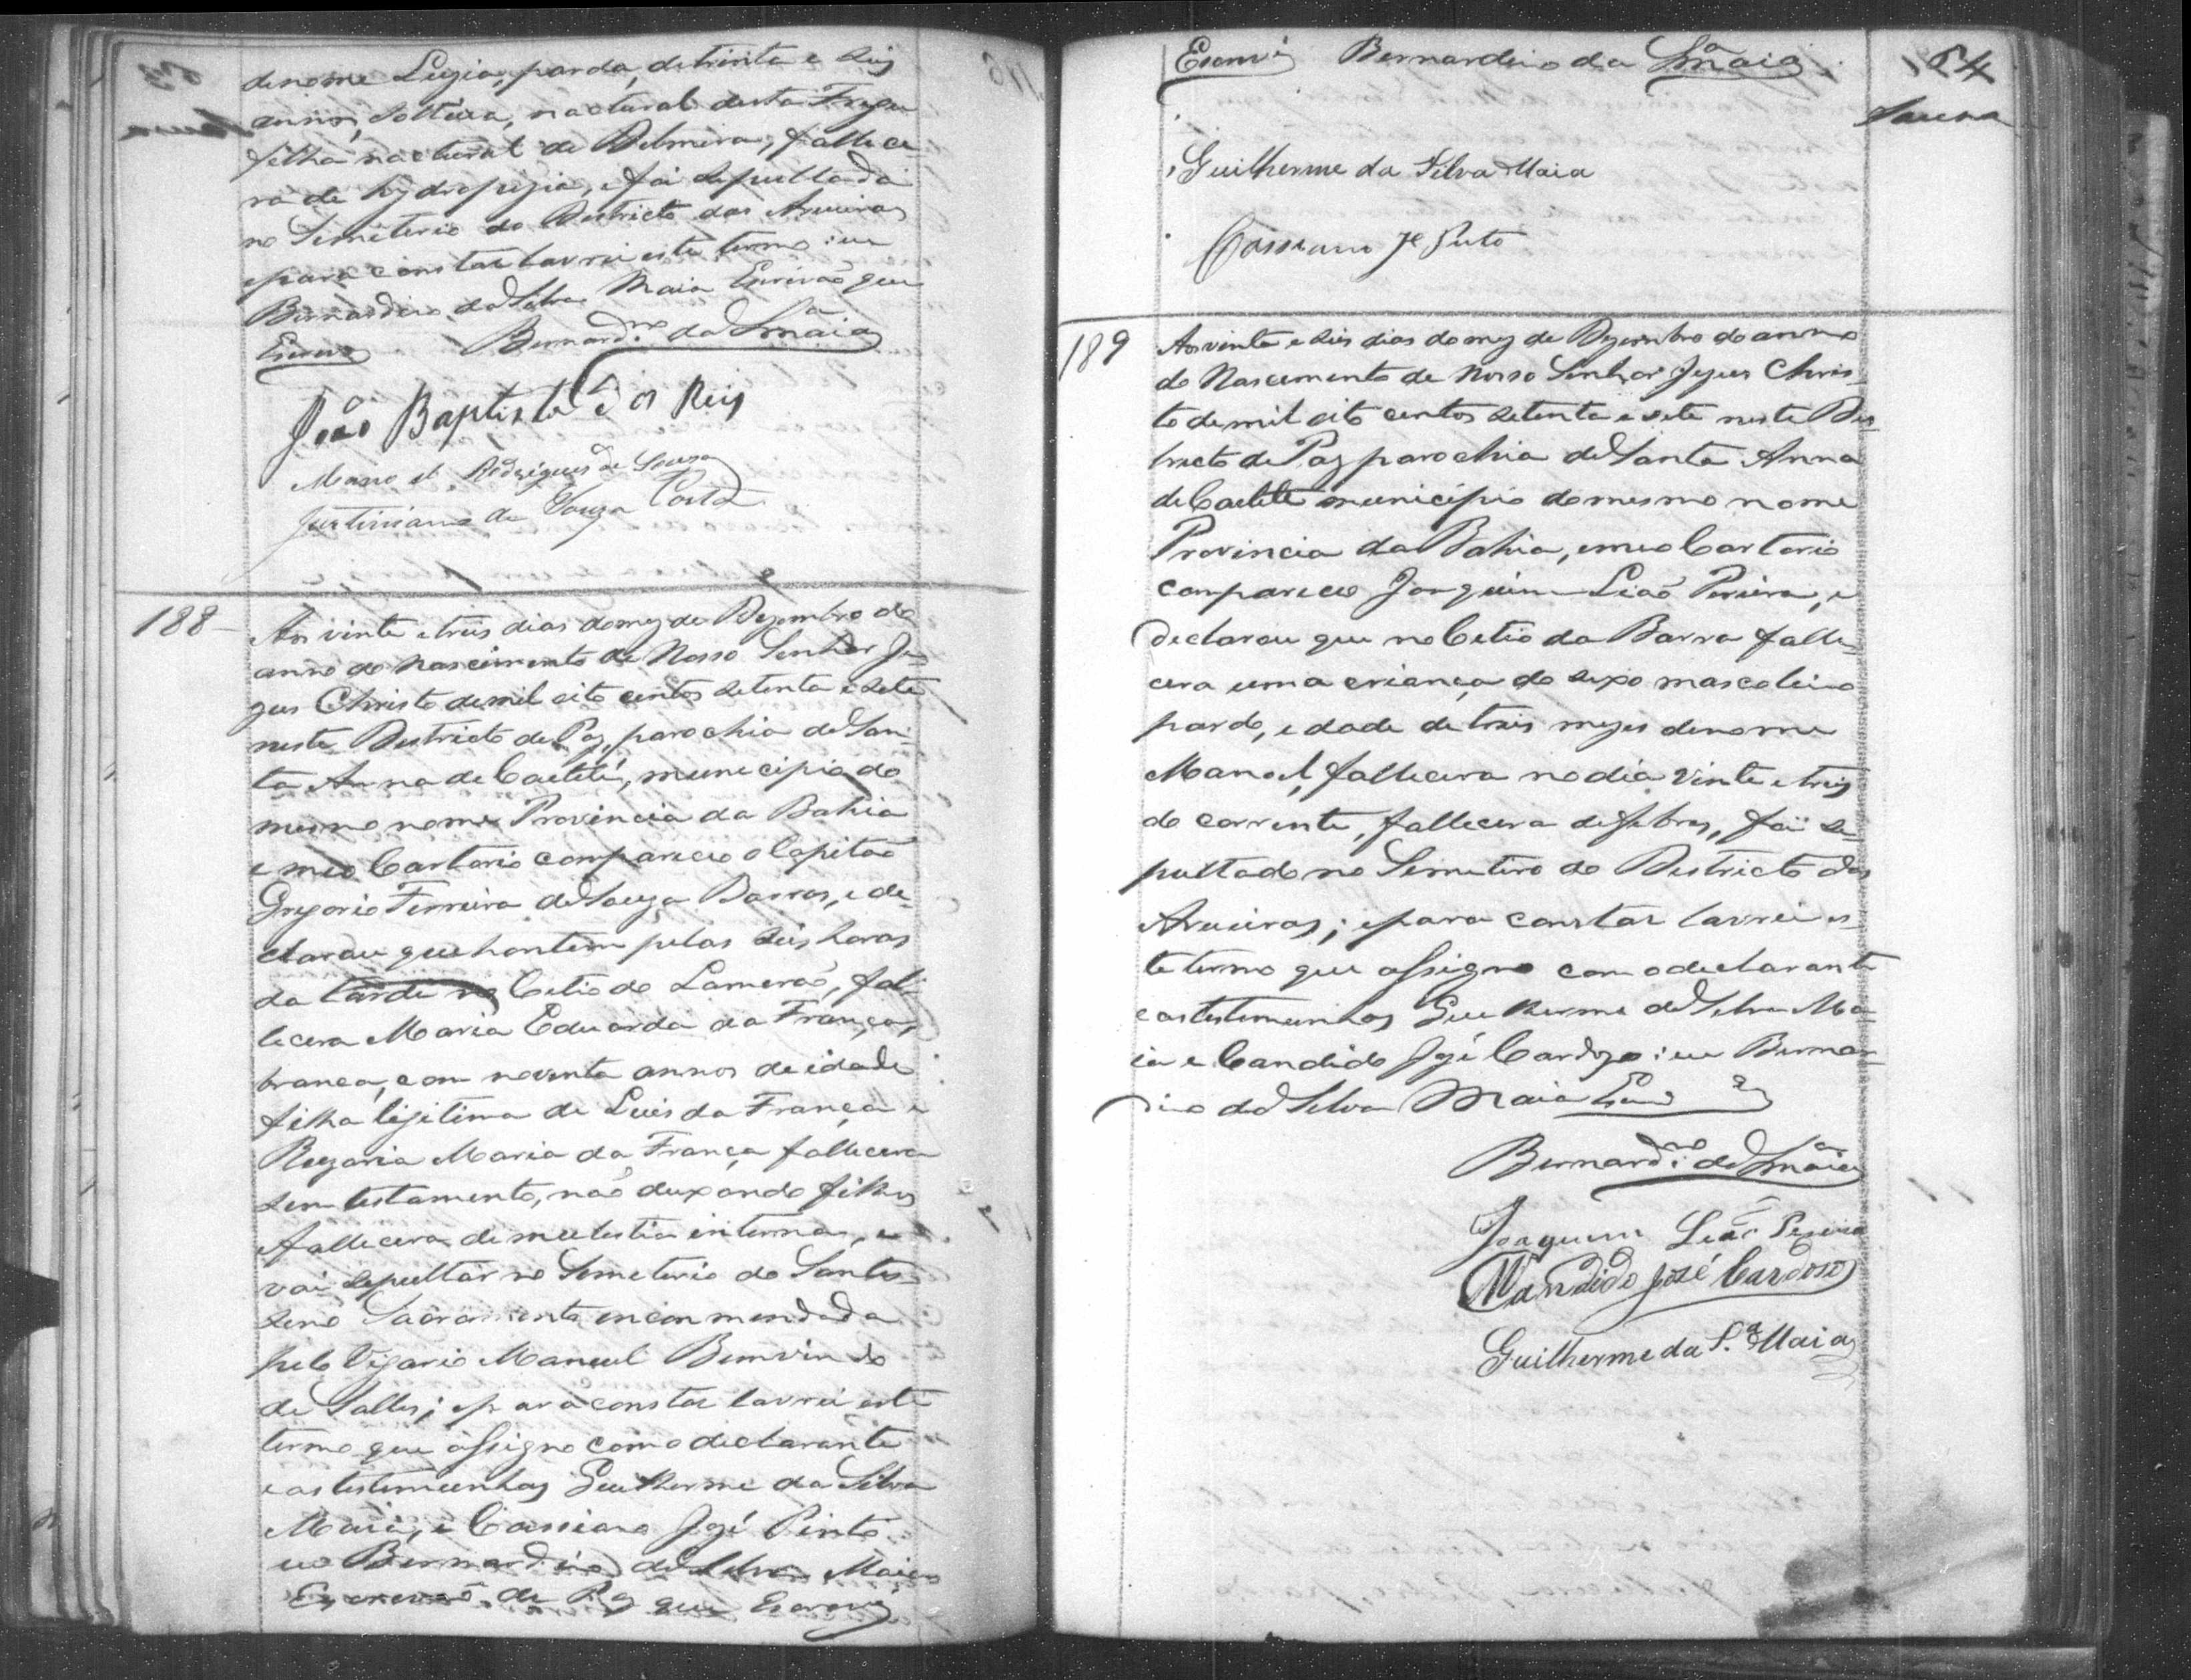 de nome Luzia, parda, de trinta e seis
annos, solteira, nactural desta Fregª
filha nactural de Delmira, fallece-
ra de hydropezia, e foi sepultada
no Semeterio do Destricto das Arueiras
e para constar lavrei este termo: eu
Bernardino da Silva Maia Escrivão que
Escrevy Bernard.no da Sª Maia
João Baptista dos Reis
Manoel Rodrigues de Souza
Justiniano de Souza Costa
188
Aos vinte e treis dias do mez de Dezembro do
anno do Nascimento de Nosso Senhor Je-
zus Christo de mil oito centos setenta e sete
neste Destricto de Paz, parochia de San-
ta Anna de Caetité, municipio do
mesmo nome Provincia da Bahia
e meo Cartorio compareceo o Capitão
Gregorio Ferreira de Souza Barros, e de-
clarou que hontem pelas seis horas
da tarde no Citio do Lamerão, fal-
lecera Maria Eduarda da França,
branca, com noventa annos de idade
filha ligitima de Luis da França e
Rozaria Maria da França fallecera
sem testamento, não deixando filhos
fallecera de mulestia interna, e
vai sepultar no Semeterio do Santis-
simo Sacramento encommendada
pelo Vigario Manuel Bemvindo
de Salles; e para constar lavrei este
termo que assigno com o declarante
e as testemunhas Guilherme da Silva
Maia, e Cassiano Jozé Pinto
eu Bernardino da Silva Maia
Escrevão de Paz que Escrevy
Escrevi Bernardino da Sª Maia
54
Guilherme da Silva Maia
Cassiano Je Pinto
189
Aos vinte e seis dias do mez de Dezembro do anno
do Nascemento de Nosso Senhor Jezus Chris-
to de mil oito centos setenta e sete neste Des-
tricto de Paz parochia de Santa Anna
de Caetité municipio do mesmo nome
Provincia da Bahia, e meo Cartorio
compareceo Joaquim Leão Pereira, e
declarou que no Citio da Barra falle-
cera uma criança do sexo mascolino
pardo, e dade de treis mezes de nome
Manoel, fallecera no dia vinte e treis
do corrente, fallecera de febres, foi se-
pultado no Semeterio do Destricto das
Arueiras; e para constar lavrei es-
te termo que assigno com o declarante
e as testemunhas Guilherme da Silva Ma-
ia e Candido Jozé Cardozo: eu Bernar-
dino da Silva Maia
Bernard.no da Sª Maia
Joaquim Leão Pereira
Candido José Cardoso
Guilherme da S.ª Maia